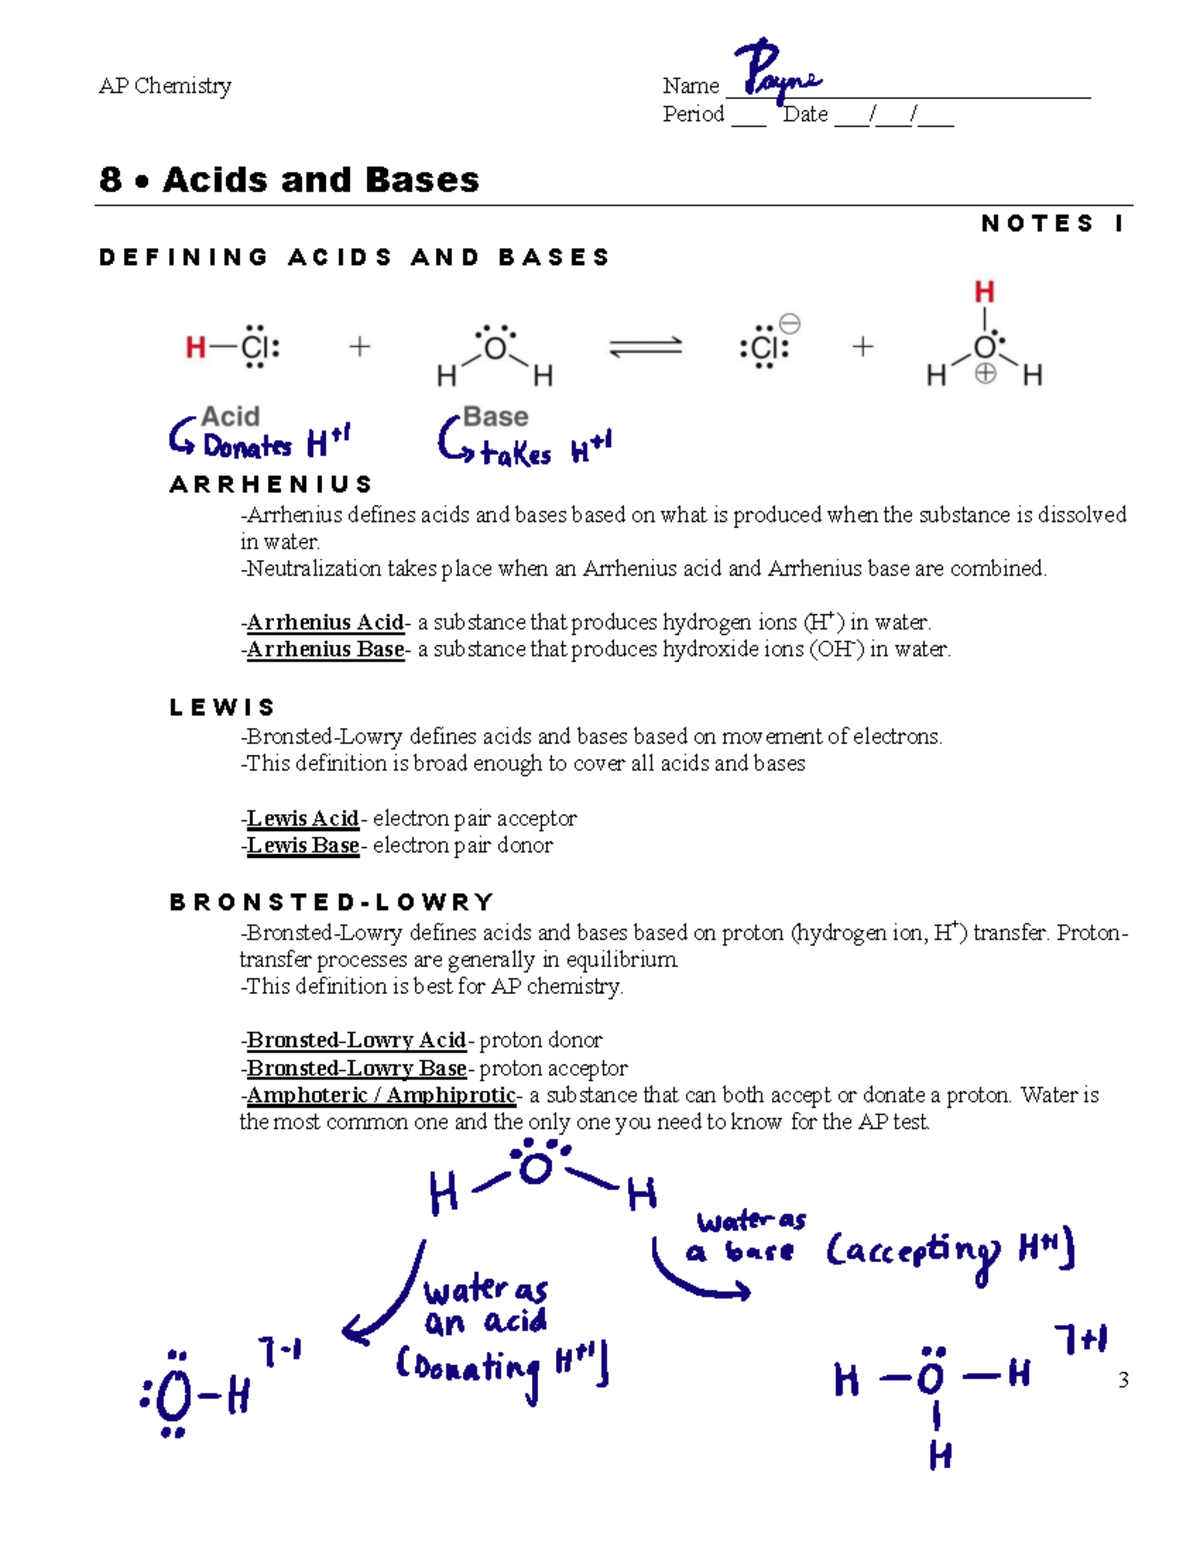 AP Chemistry
Name Payne
Period ___ Date ___/___/___
8 • Acids and Bases
NOTES I
DEFINING ACIDS AND BASES
H
H—Cl: + O ⇌ :Cl: ⊖ + O
H H H ⊕ H
Acid Base
Donates H+1 takes H+1
ARRHENIUS
-Arrhenius defines acids and bases based on what is produced when the substance is dissolved
in water.
-Neutralization takes place when an Arrhenius acid and Arrhenius base are combined.
-Arrhenius Acid- a substance that produces hydrogen ions (H+) in water.
-Arrhenius Base- a substance that produces hydroxide ions (OH-) in water.
LEWIS
-Bronsted-Lowry defines acids and bases based on movement of electrons.
-This definition is broad enough to cover all acids and bases
-Lewis Acid- electron pair acceptor
-Lewis Base- electron pair donor
BRONSTED-LOWRY
-Bronsted-Lowry defines acids and bases based on proton (hydrogen ion, H+) transfer. Proton-
transfer processes are generally in equilibrium
-This definition is best for AP chemistry.
-Bronsted-Lowry Acid- proton donor
-Bronsted-Lowry Base- proton acceptor
-Amphoteric / Amphiprotic- a substance that can both accept or donate a proton. Water is
the most common one and the only one you need to know for the AP test.
H O H
water as
a base (accepting) H+1]
water as
an acid
(Donating H+1]
:O-H ]-1
H-O-H ]+1
H
3